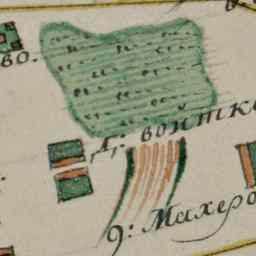 во.
д: воитко
9: Махеро